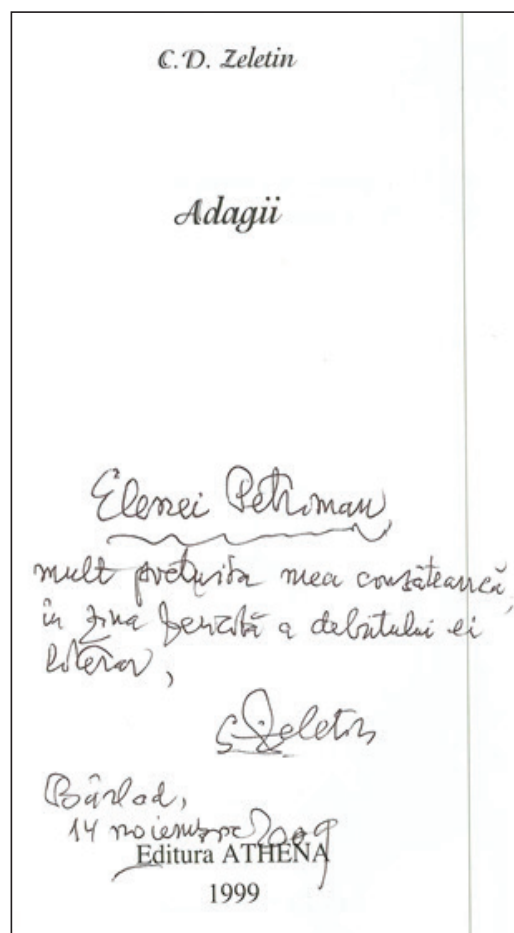 C.D. Zeletin
Adagii
Elenei Petriman
mult prețuita mea consăteancă,
în ziua fericită a debutului ei
literar,
C.D. Zeletin
Bârlad,
14 noiembrie 2009
Editura ATHENA
1999